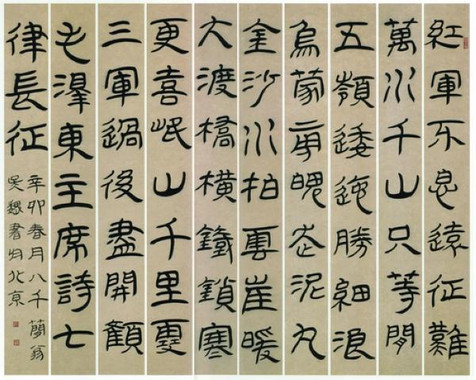 紅軍不怕遠征難
萬水千山只等閒
五嶺逶迤勝細浪
烏蒙旁魄走泥丸
金沙水拍雲崖暖
大渡橋橫鐵鎖寒
更喜岷山千里雪
三軍過後盡開顏
毛澤東主席詩七
律長征
辛卯春月八千簡翁
吴巍書於北京